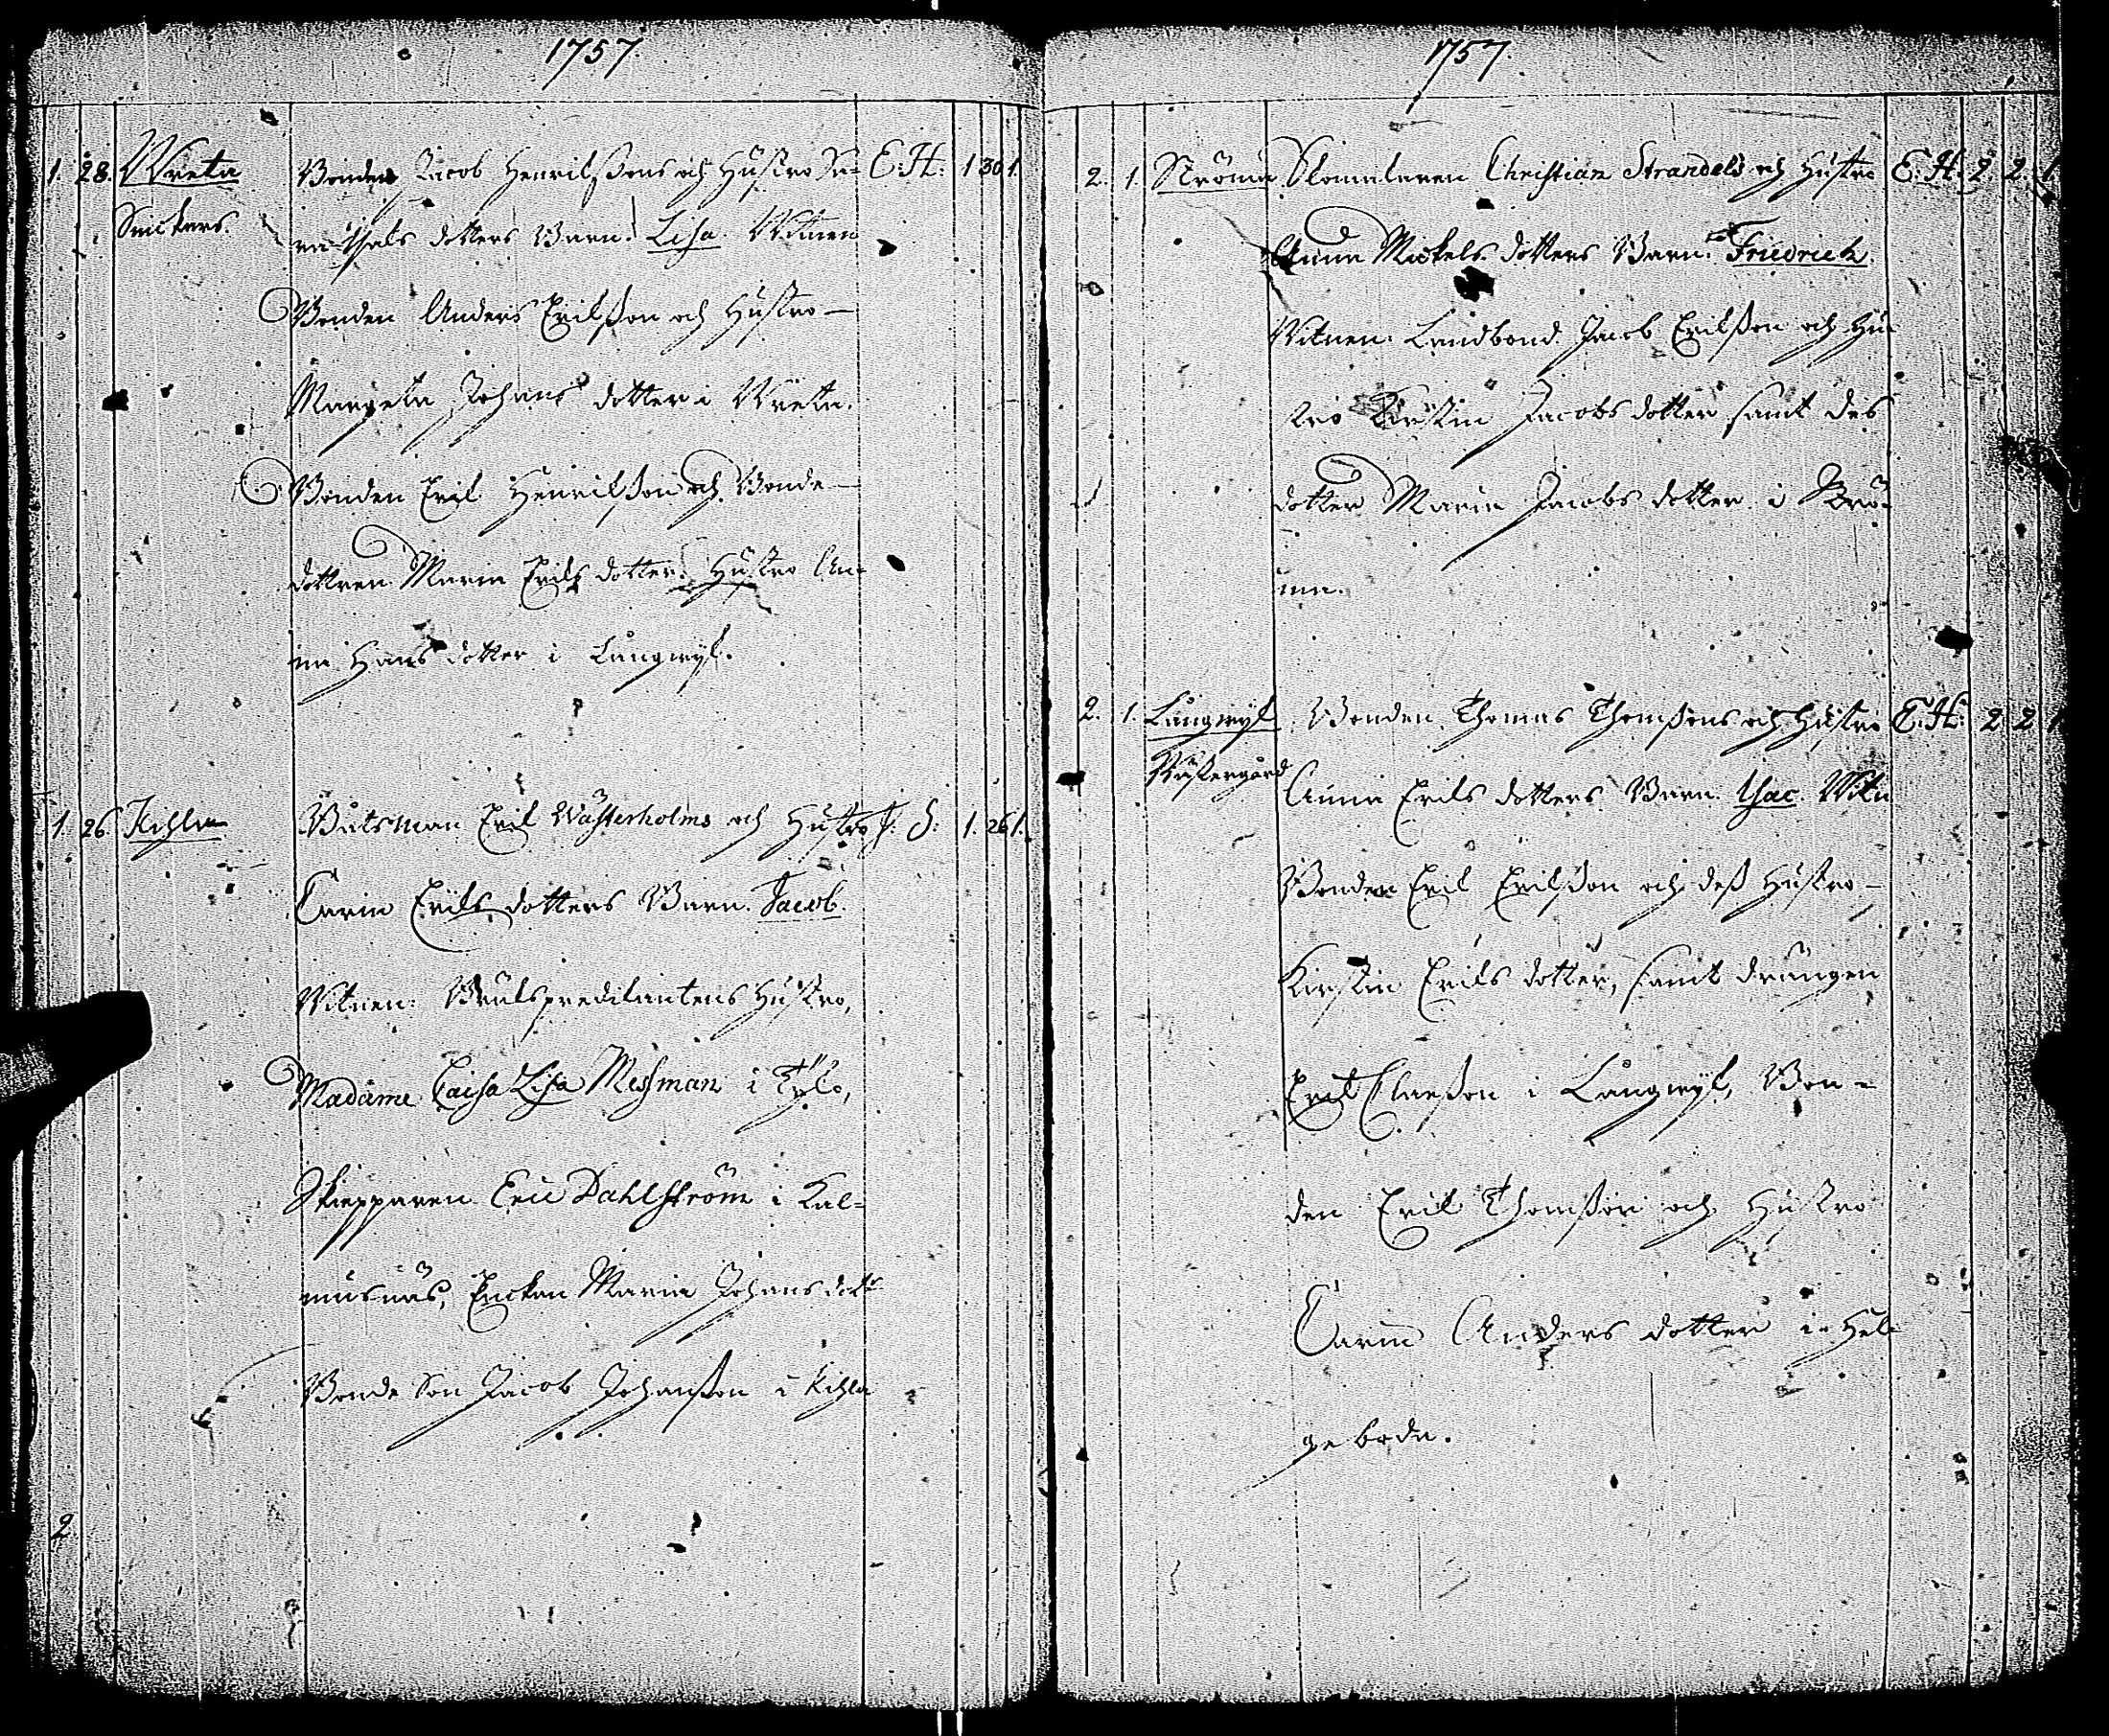 1757.
1. 28. Wreta Bonden Jacob Henrikssons och Hustro Su- E. H. 1 30 1.
Snickars. na Isaks dotters Barn. Lisa. Witnen
Bonden Anders Eriksson och Hustro
Margeta Johans dotter i Wreta.
Bonden Erik Henriksson och Bonde
dottren Maria Eriks dotter. Hustro An-
na Hans dotter i Långwijk.
1. 26. Kihla Båtsman Erik Wästerholms och Hustro 1. 26 1.
Carin Eriks dotters Barn. Jacob.
Witnen: Bruks predikantens Hustro,
Madame Caisa Lisa Mesman i Tykö,
Skiepparen Eric Dahlström i Kal-
musnäs, Enckan Maria Johans dott
Bonde Son Jacob Johansson i Kihla
2
1757.
2. 1. Ströma Christian Strandels och Hustro E. H. 2. 2. 1
Anna Mickels dotters Barn. Friedrich.
Witnen. Landbond. Jacob Eriksson och Hu-
stro Kirstin Jacobs dotter samt des
dotter Maria Jacobs dotter i Strö-
ma.
2. 1. Långwijk Bonden Thomas Thomssons och Hustro E. H. 2 2 1
Rustergård Anna Eriks dotters Barn. Isac. Witn
Bonden Erik Eriksson och dess Hustro
Kirstin Eriks dotter, samt drängen
Erik Claesson i Långwijk, Bon-
den Erik Thomsson och Hustro
Carin Anders dotter i Hel-
geboda.